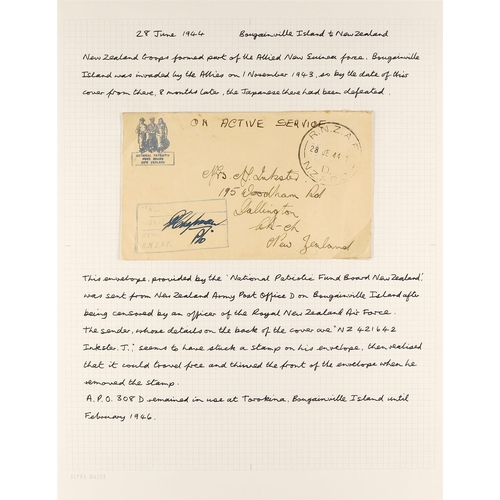 28 June 1944 Bougainville Island to New Zealand
New Zealand troops formed part of the Allied New Guinea force. Bougainville
Island was invaded by the Allies on 1 November 1943, so by the date of this
cover from there, 8 months later, the Japanese there had been defeated.
ON ACTIVE SERVICE
NATIONAL PATRIOTIC
FUND BOARD
NEW ZEALAND
R.N.Z.A.F.
28 JE 44
D
Mrs A.J. Inkster
195 Woodham Rd
Dallington
Ch-ch
New Zealand
This envelope, provided by the 'National Patriotic Fund Board New Zealand',
was sent from New Zealand Army Post Office D on Bougainville Island after
being censored by an officer of the Royal New Zealand Air Force.
The sender, whose details on the back of the cover are 'NZ 421642
Inkster. J.', seems to have stuck a stamp on his envelope, then realised
that it could travel free and thinned the front of the envelope when he
removed the stamp.
A.P.O. 308 D remained in use at Torokina, Bougainville Island until
February 1946.